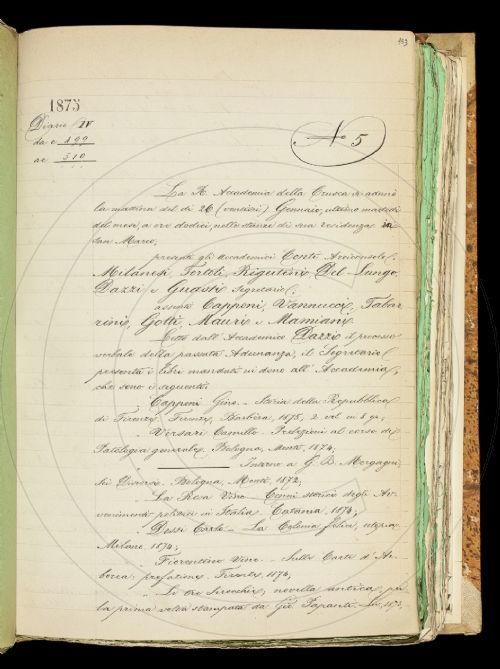 193
1875
Diario IV
da c 499
a c 510
N.o 5
La R. Accademia della Crusca si adunò
la mattina del dì 26 (ventisei) Gennaio, ultimo martedì
del mese, a ore dodici, nelle stanze di sua residenza in
San Marco,
presenti gli accademici Conti Arciconsolo,
Milanesi, Tortoli, Rigutini, Del-Lungo,
Dazzi e Guasti Segretario,
assenti Capponi, Vannucci, Tabar
rini, Gotti, Mauri e Mamiani.
Letto dall'Accademico Dazzi il processo
verbale della passata Adunanza, il Segretario
presenta i libri mandati in dono all'Accademia,
che sono i seguenti:
Capponi Gino - Storia della Repubblica
di Firenze. Firenze, Barbèra, 1875, 2 vol. in 8.o;
Versari Camillo - Prelezioni al corso di
Patologia generale. Bologna, Monti, 1874;
Intorno a G. B. Morgagni,
Discorso. Bologna, Monti, 1872;
La Rosa Vino - Cenni storici degli Av-
venimenti politici in Italia. Catania, 1874;
Dossi Carlo - La Colonia felice, utopia.
Milano 1874;
Fiorentino Vino - Sulle Carte d'Ar-
borea; prefazione. Firenze, 1874;
Le tre Sirocchie, novella antica, per
la prima volta stampata da Gio. Papanti. 1873;